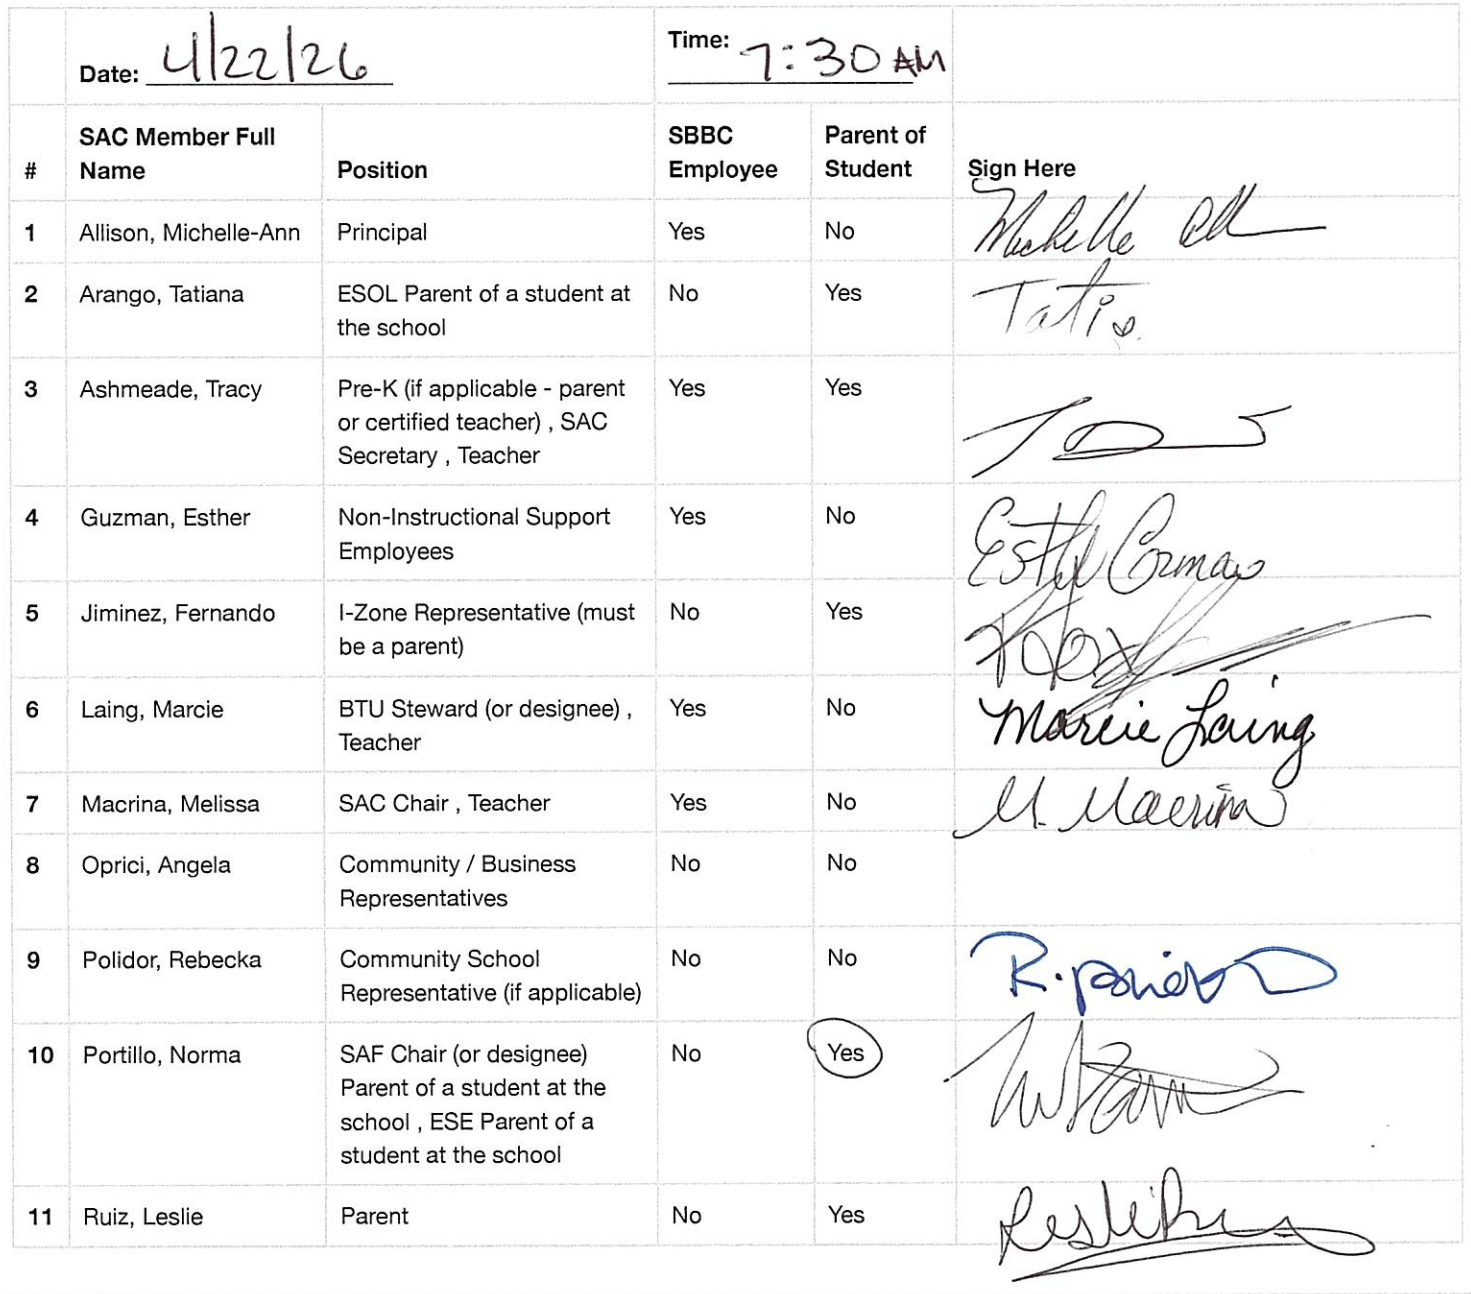 Date: 4/22/26 Time: 7:30 AM
# SAC Member Full Name Position SBBC Employee Parent of Student Sign Here
1 Allison, Michelle-Ann Principal Yes No Michelle All
2 Arango, Tatiana ESOL Parent of a student at Yes No Tati
the school
3 Ashmeade, Tracy Pre-K (if applicable - parent Yes Yes
or certified teacher) , SAC
Secretary , Teacher
4 Guzman, Esther Non-Instructional Support Yes No Esther
Employees
5 Jiminez, Fernando I-Zone Representative (must No Yes
be a parent)
6 Laing, Marcie BTU Steward (or designee) , Yes No Marcie Laing
Teacher
7 Macrina, Melissa SAC Chair , Teacher Yes No M. Macrina
8 Oprici, Angela Community / Business No No
Representatives
9 Polidor, Rebecka Community School No No R. Polidor
Representative (if applicable)
10 Portillo, Norma SAF Chair (or designee) No Yes
Parent of a student at the
school , ESE Parent of a
student at the school
11 Ruiz, Leslie Parent No Yes Leslie Ruiz